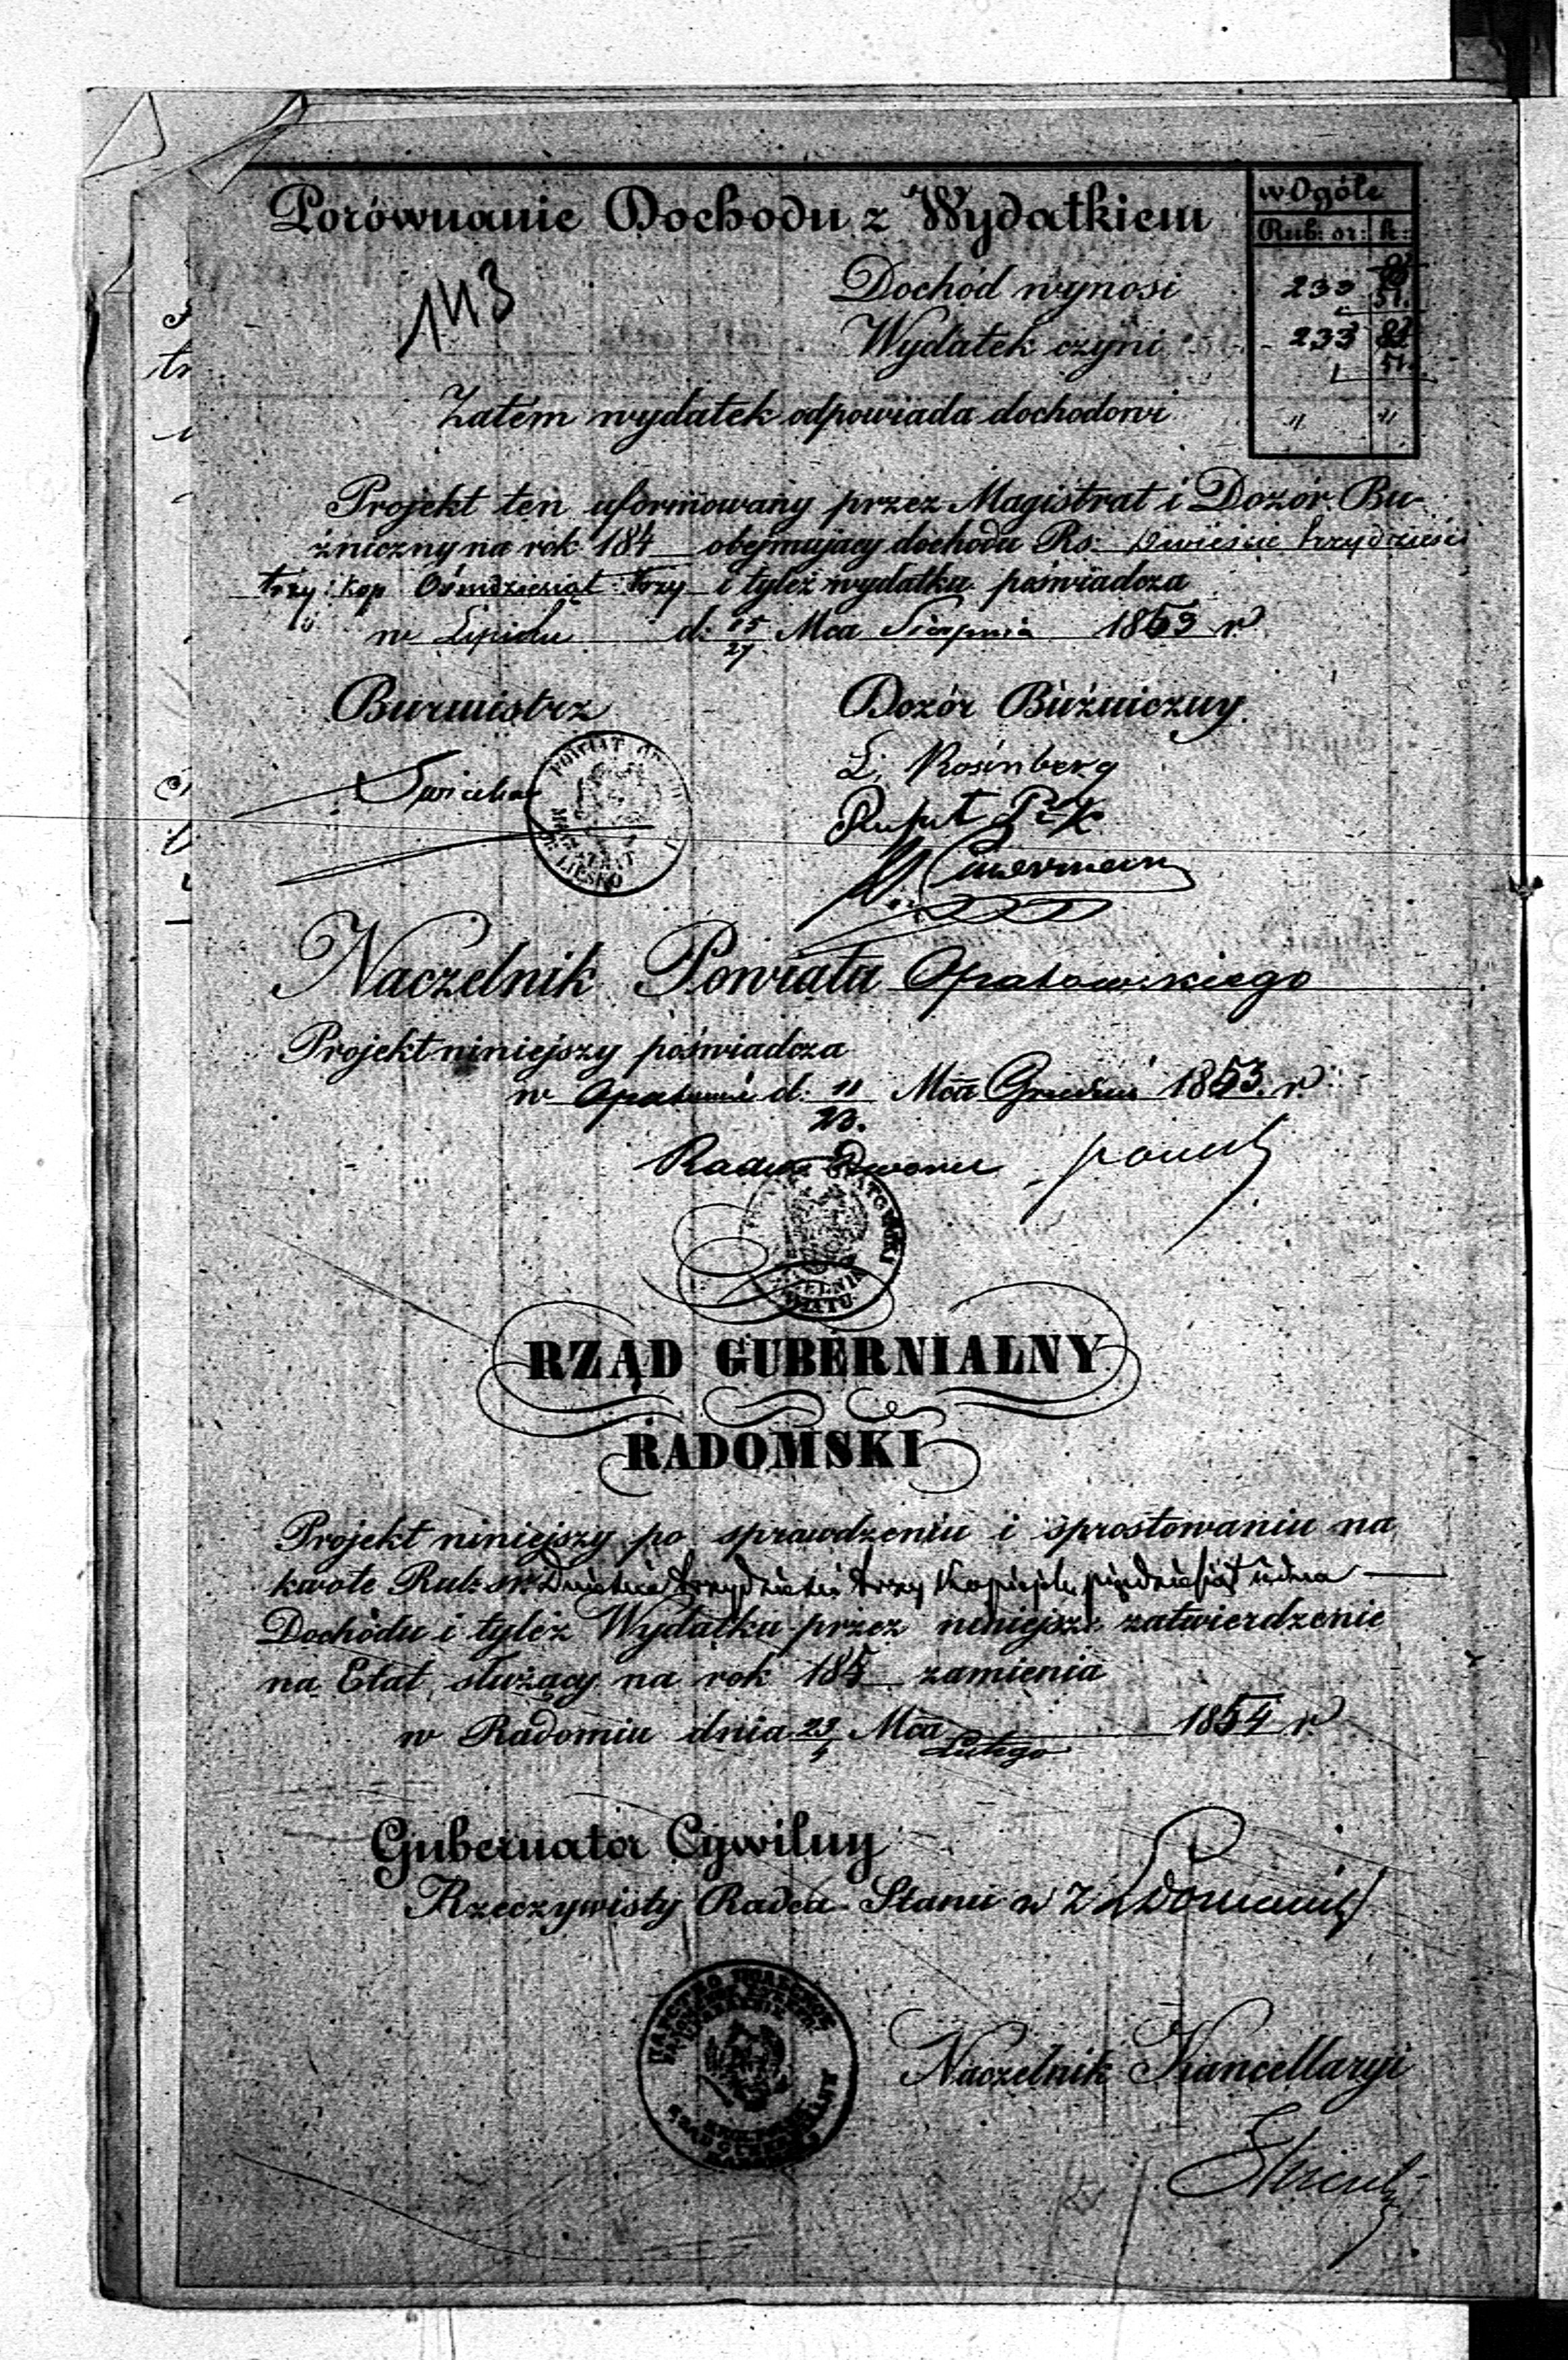 Porównanie Dochodu z Wydatkiem
w Ogóle
Rub: sr: k:
143
Dochód wynosi 233
51.
Wydatek czyni 233 82
51.
Zatem wydatek odpowiada dochodowi " "
Projekt ten uformowany przez Magistrat i Dozór Bu-
żniczny na rok 184 obejmujący dochodu Rs: Dwieście trzydzieści
trzy kop Ośmdziesiąt trzy i tyleż wydatku poświadcza
w Lipsku d: 15/27 Mca Sierpnia 1853 r
Burmistrz Dozór Bużniczny
L. Rosinberg
POWIAT
MAGISTRAT
Naczelnik Powiatu Opatowskiego
Projekt niniejszy poświadcza
w Opatowie d: 11/23. Mca Grudnia 1853. r.
Radca Dworu
OPATOWSKI
RZĄD GUBERNIALNY
RADOMSKI
Projekt niniejszy po sprawdzeniu i sprostowaniu na
kwotę Rub: sr: Dwieście trzydzieści trzy kopiejek pięćdziesiąt jedna
Dochodu i tyleż Wydatku przez niniejsze zatwierdzenie
na Etat służący na rok 185 zamienia
w Radomiu dnia 23/4 Mca Lutego 1854 r
Gubernator Cywilny
Rzeczywisty Radca Stanu w Z
Naczelnik Kancellaryi